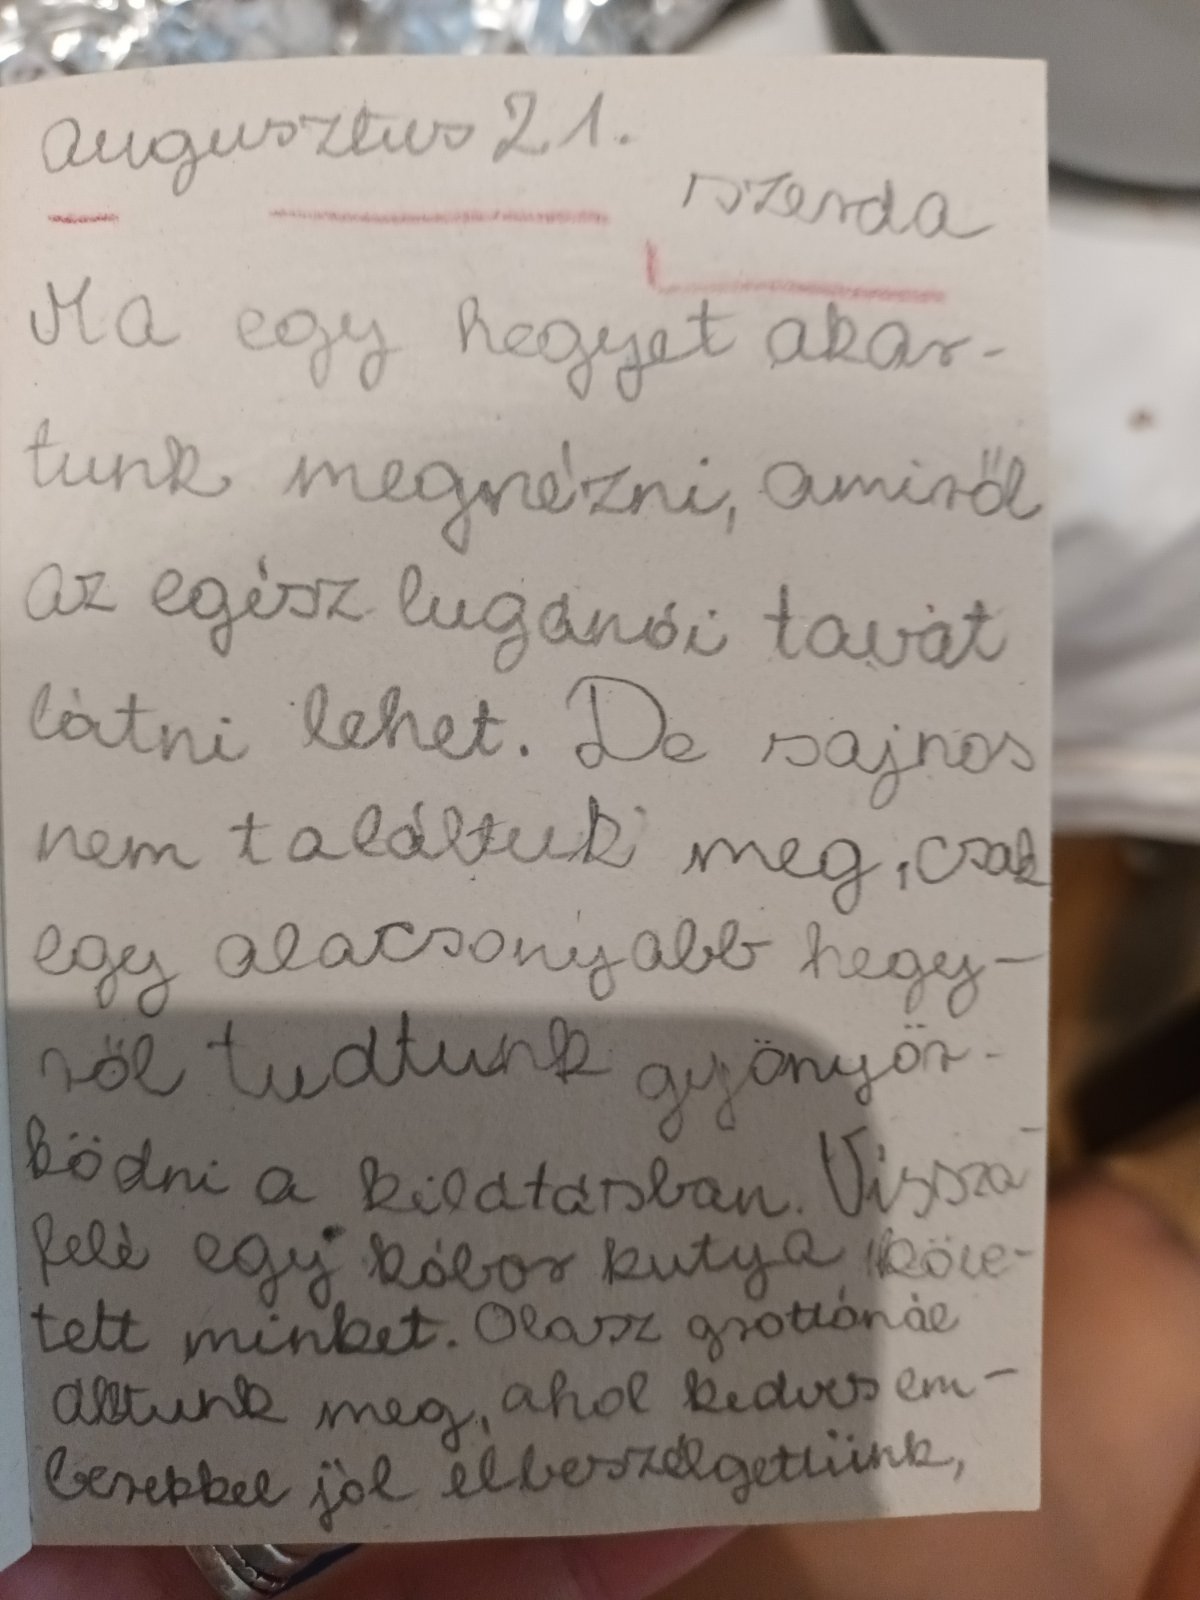 augusztus 21.
szerda
Ma egy hegyet akar-
tunk megnézni, amiről
az egész lugánói tavat
látni lehet. De sajnos
nem találtuk meg, csak
egy alacsonyabb hegy-
ről tudtunk gyönyör-
ködni a kilátásban. Vissza-
felé egy kóbor kutya köve-
tett minket. Olasz grottónál
álltunk meg, ahol kedves em-
berekkel jól elbeszélgettünk,